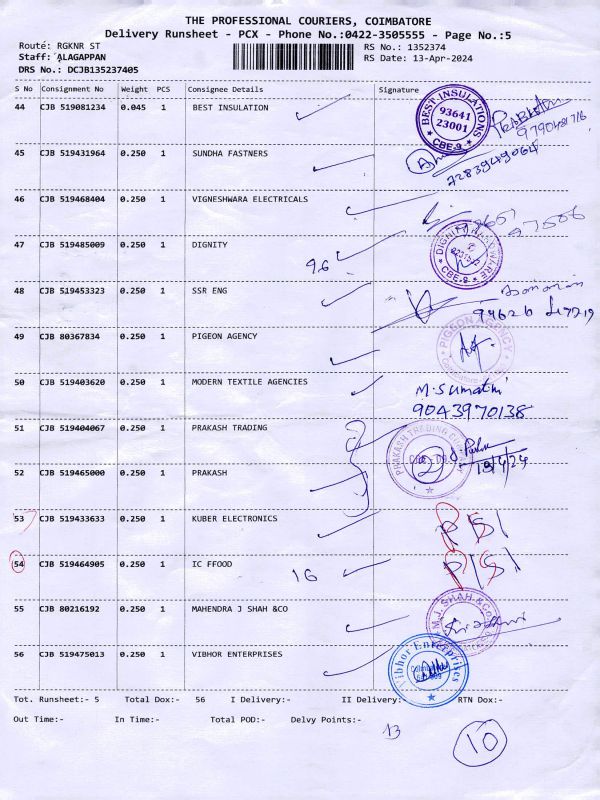 THE PROFESSIONAL COURIERS, COIMBATORE
Delivery Runsheet - PCX - Phone No.:0422-3505555 - Page No.:5
Route: RGKNR ST RS No.: 1352374
Staff: ALAGAPPAN RS Date: 13-Apr-2024
DRS No.: DCJB135237405
S No Consignment No Weight PCS Consignee Details Signature
44 CJB 519081234 0.045 1 BEST INSULATION
BEST INSULATIONS 93641 23001 CBE-9
9790481716
45 CJB 519431964 0.250 1 SUNDHA FASTNERS
7283949064
46 CJB 519468404 0.250 1 VIGNESHWARA ELECTRICALS
47 CJB 519485009 0.250 1 DIGNITY 96
CBE-9
48 CJB 519453323 0.250 1 SSR ENG
49 CJB 80367834 1 PIGEON AGENCY
PIGEON AGENCY
50 CJB 519403620 0.250 1 MODERN TEXTILE AGENCIES
M.Sumathi
9043970138
51 CJB 519404067 0.250 1 PRAKASH TRADING
PRAKASH TRADING
2
52 CJB 519465000 0.250 1 PRAKASH
53 CJB 519433633 0.250 1 KUBER ELECTRONICS
54 CJB 519464905 0.250 1 IC FFOOD 16
55 CJB 80216192 0.250 1 MAHENDRA J SHAH &CO
M.J. SHAH & CO
56 CJB 519475013 0.250 1 VIBHOR ENTERPRISES
Vibhor Enterprises
Tot. Runsheet:- 5 Total Dox:- 56 I Delivery:- II Delivery:- RTN Dox:-
Out Time:- In Time:- Total POD:- Delvy Points:-
13
10